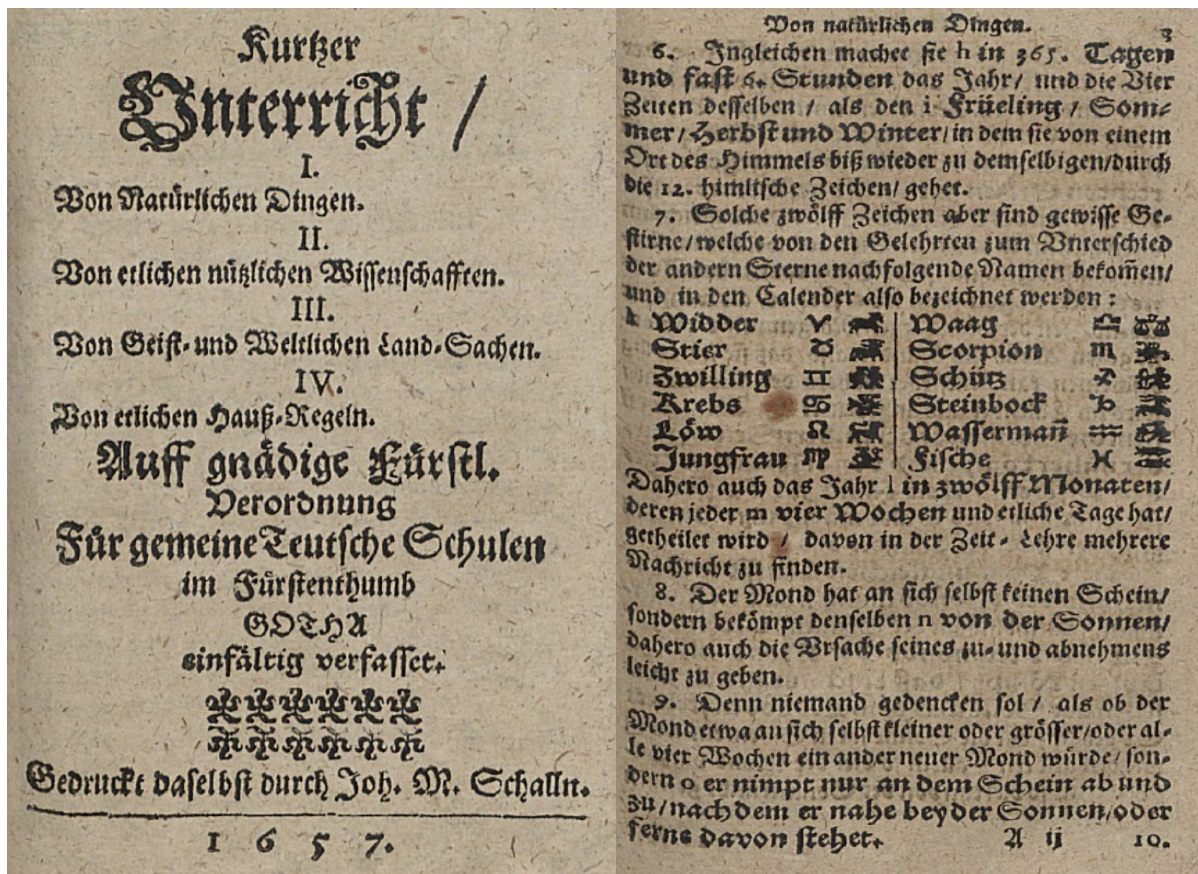 Kurtzer
Vnterricht /
I.
Von Natürlichen Dingen.
II.
Von etlichen nützlichen Wissenschafften.
III.
Von Geist- und Weltlichen Land-Sachen.
IV.
Von etlichen Hauß-Regeln.
Auff gnädige Fürstl.
Verordnung
Für gemeine Teutsche Schulen
im Fürstenthumb
GOTHA
einfältig verfasset.
Gedruckt daselbst durch Joh. M. Schalln.
1657.
Von natürlichen Dingen. 3
6. Ingleichen machet sie h in 365. Tagen
und fast 6. Stunden das Jahr/ und die Vier
Zeiten desselben / als den i Früeling / Som-
mer/ Herbst und Winter/ in dem sie von einem
Ort des Himmels biß wieder zu demselbigen/durch
die 12. himlische Zeichen/ gehet.
7. Solche zwölff Zeichen aber sind gewisse Ge-
stirne/welche von den Gelehrten zum Vnterschied
der andern Sterne nachfolgende Namen bekom̃en/
und in den Calender also bezeichnet werden:
k Widder ♈ Waag ♎
Stier ♉ Scorpion ♏
Zwilling ♊ Schütz ♐
Krebs ♋ Steinbock ♑
Löw ♌ Wasserman̄ ♒
Jungfrau ♍ Fische ♓
Dahero auch das Jahr l in zwölff Monaten/
deren jeder m vier Wochen und etliche Tage hat/
getheilet wird / davon in der Zeit-Lehre mehrere
Nachricht zu finden.
8. Der Mond hat an sich selbst keinen Schein/
sondern bekömpt denselben n von der Sonnen/
dahero auch die Vrsache seines zu- und abnehmens
leicht zu geben.
9. Denn niemand gedencken sol / als ob der
Mond etwa an sich selbst kleiner oder grösser/oder al-
le vier Wochen ein ander neuer Mond würde/ son-
dern o er nimpt nur an dem Schein ab und
zu/nach dem er nahe bey der Sonnen/oder
ferne davon stehet. A ij 10.